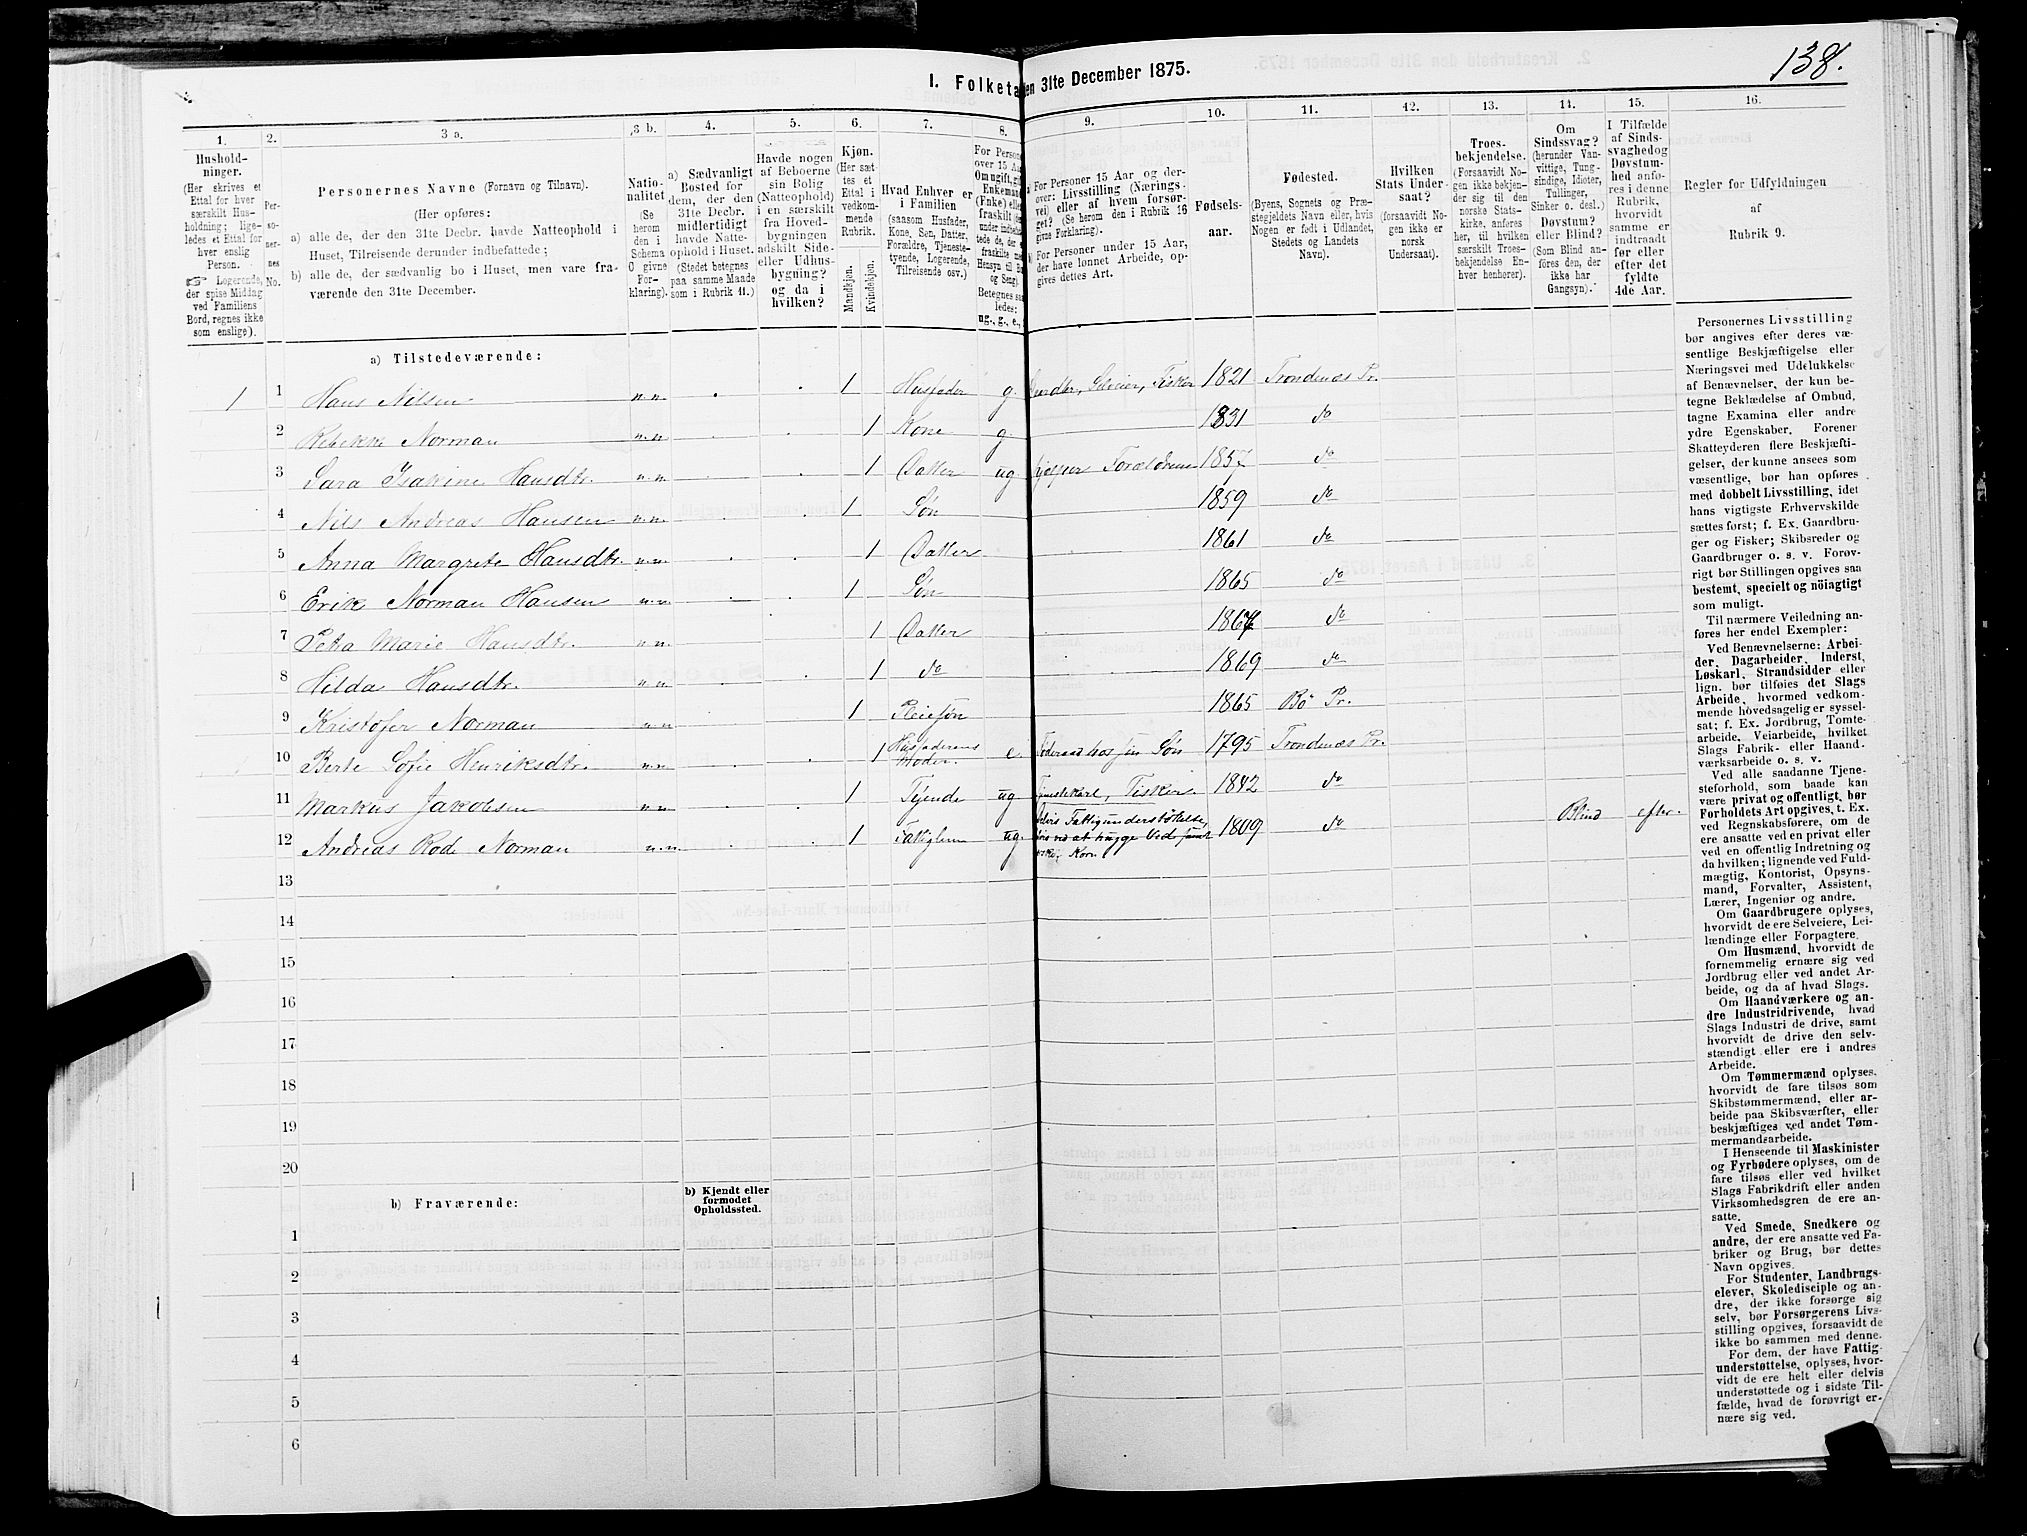 138.
I. Folketa en 31te December 1875.
1. 2. 3 a. 3 b. 4. 5. 6. 7. 8. 9. 10. 11. 12. 13. 14. 15. 16.
Hushold-
ninger.
(Her skrives et
Ettal for hver
særskilt Hus-
holdning; lige-
ledes et Ettal for
hver enslig
Person.
☞ Logerende,
der spise Middag
ved Familiens
Bord, regnes ikke
som enslige).
Per-
soner-
nes
No.
Personernes Navne (Fornavn og Tilnavn).
(Her opføres:
a) alle de, der den 31te Decbr. havde Natteophold i
Huset, Tilreisende derunder indbefattede;
b) alle de, der sædvanlig bo i Huset, men vare fra-
værende den 31te December.
Natio-
nalitet
(Se
herom
den i
Schema
O givne
For-
klaring).
a) Sædvanligt
Bosted for
dem, der den
31te Decbr.
midlertidigt
havde Natte-
ophold i Huset.
(Stedet betegnes
paa samme Maade
som i Rubrik 11.)
Havde nogen
af Beboerne
sin Bolig
(Natteophold)
i en særskilt
fra Hoved-
bygningen
adskilt Side-
eller Udhus-
bygning?
og da i
hvilken?
Kjøn.
(Her sæt-
tes et
Ettal i
vedkom-
mende
Rubrik.
Mandkjøn.
Kvindekjøn.
Hvad Enhver er
i Familien
(saasom Husfader,
Kone, Søn, Datter,
Forældre, Tjeneste-
tyende, Logerende,
Tilreisende osv.)
For Persone
over 15 Aa
Om ugift, gift
Enkemand
(Enke) elle
fraskilt
Betegnes saa
ledes:
ug., g., e.,
a) For Personer 15 Aar og der-
over: Livsstilling (Nærings-
vei) eller af hvem forsør-
get? (Se herom den i Rubrik 16
givne Forklaring).
b) For Personer under 15 Aar,
der have lønnet Arbeide, op-
gives dettes Art.
Fødsels-
aar.
Fødested.
(Byens, Sognets og Præ-
stegjeldets Navn eller, hvis
Nogen er født i Udlandet,
Stedets og Landets
Navn).
Hvilken
Stats Under-
saat?
(forsaavidt No-
gen ikke er
norsk
Undersaat).
Troes-
bekjendelse.
(Forsaavidt No-
gen ikke bekjen-
der sig til den
norske Stats-
kirke, anføres
her, til hvilken
særskilt Troes-
bekjendelse En-
hver henhører).
Om
Sindssvag?
(herunder Van-
vittige, Tung-
sindige, Idioter,
Tullinger,
Sinker o. desl.)
Døvstum?
eller Blind?
(Som Blind an-
føres den, der
ikke har
Gangsyn).
I Tilfælde
af Sinds-
svaghed og
Døvstum-
hed anfø-
res i denne
Rubrik,
hvorvidt
samme er
indtraadt
før eller
efter det
fyldte
4de Aar.
Regler for Udfyldningen
af
Rubrik 9.
a) Tilstedeværende:
1 1 Hans Nilsen n.n. 1 Husfader g. Selveier, Fisker 1821 Trondenæs Pr.
2 Rebekka Norman n.n. 1 Kone g. 1831 do
3 Sara Isakine Hansdtr. n.n. 1 Datter ug Forældrene 1857 do
4 Nils Andreas Hansen n.n. 1 Søn 1859 do
5 Anna Margrete Hansdtr. n.n. 1 Datter 1861 do
6 Erik Norman Hansen n.n. 1 Søn 1865 do
7 Petra Marie Hansdtr. n.n. 1 Datter do
8 Hilda Hansdtr. n.n. 1 do 1869 do
9 Kristofer Norman n.n. 1 Pleiesøn 1865 Bö Pr.
10 Berte Sofie Henriksdtr. n.n. 1 Husfaderens Moder. e. Føderaad hos sin Søn 1795 Trondenæs Pr.
11 Markus Jakobsen n.n. 1 Tjende ug Tjenestekarl, Fisker. 1842 do
12 Andreas Rode Norman n.n. 1 Fattiglem ug. Delvis Fattigunderstøttelse, ved at hugge Ved samt Korn 1809 do Blind efter.
13
14
15
16
17
18
19
20
b) Fraværende:
b) Kjendt eller
formodet
Opholdssted.
1
2
3
4
5
6
Personernes Livsstilling
bør angives efter deres væ-
sentlige Beskjæftigelse eller
Næringsvei med Udelukkelse
af Benævnelser, der kun be-
tegne Beklædelse af Ombud,
tagne Examina eller andre
ydre Egenskaber. Forener
Skatteyderen flere Beskjæfti-
gelser, der kunne ansees som
væsentlige, bør han opføres
med dobbelt Livsstilling, idet
hans vigtigste Erhvervskilde
sættes først; f. Ex. Gaardbru-
ger og Fisker; Skibsreder og
Gaardbruger o. s. v. Forøv-
rigt bør Stillingen opgives saa
bestemt, specielt og nöiagtigt
som muligt.
Til nærmere Veiledning an-
føres her endel Exempler:
Ved Benævnelserne: Arbei-
der, Dagarbeider, Inderst,
Løskarl, Strandsidder eller
lign. bør tilføies det Slags
Arbeide, hvormed vedkom-
mende hovedsagelig er syssel-
sat; f. Ex. Jordbrug, Tomte-
arbeide, Veiarbeide, hvilket
Slags Fabrik- eller Haand-
værksarbeide o. s. v.
Ved alle saadanne Tjene-
steforhold, som baade kan
være privat og offentligt, bør
Forholdets Art opgives, t. Ex.
ved Regnskabsførere, om de
ere ansatte ved en privat eller
ved en offentlig Indretning og
da hvilken; lignende ved Fuld-
mægtig, Kontorist, Opsyns-
mand, Forvalter, Assistent,
Lærer, Ingeniør og andre.
Om Gaardbrugere oplyses,
hvorvidt de ere Selveiere, Lei-
lændinge eller Forpagtere.
Om Husmænd, hvorvidt de
fornemmelig ernære sig ved
Jordbrug eller ved andet Ar-
beide, og da af hvad Slags.
Om Haandværkere og an-
dre Industridrivende, hvad
Slags Industri de drive, samt
hvorvidt de drive den selv-
stændigt eller ere i andres
Arbeide.
Om Tømmermænd oplyses,
hvorvidt de fare tilsøs som
Skibstømmermænd, eller ar-
beide paa Skibsværfter, eller
beskjæftiges ved andet Tøm-
mermandsarbeide.
I Henseende til Maskinister
og Fyrbødere oplyses, om de
fare tilsøs eller ved hvilket
Slags Fabrikdrift eller anden
Virksomhedsgren de ere an-
satte.
Ved Smede, Snedkere og
andre, der ere ansatte ved Fa-
briker og Brug, bør dettes
Navn opgives.
For Studenter, Landbrugs-
elever, Skoledisciple og an-
dre, der ikke forsørge sig
selv, bør Forsørgerens Livs-
stilling opgives, forsaavidt de
ikke bo sammen med denne.
For dem, der have Fattig-
understøttelse, oplyses, hvor-
vidt de ere helt eller delvis
understøttede og i sidste Til-
fælde, hvad de forøvrigt er-
nære sig ved.